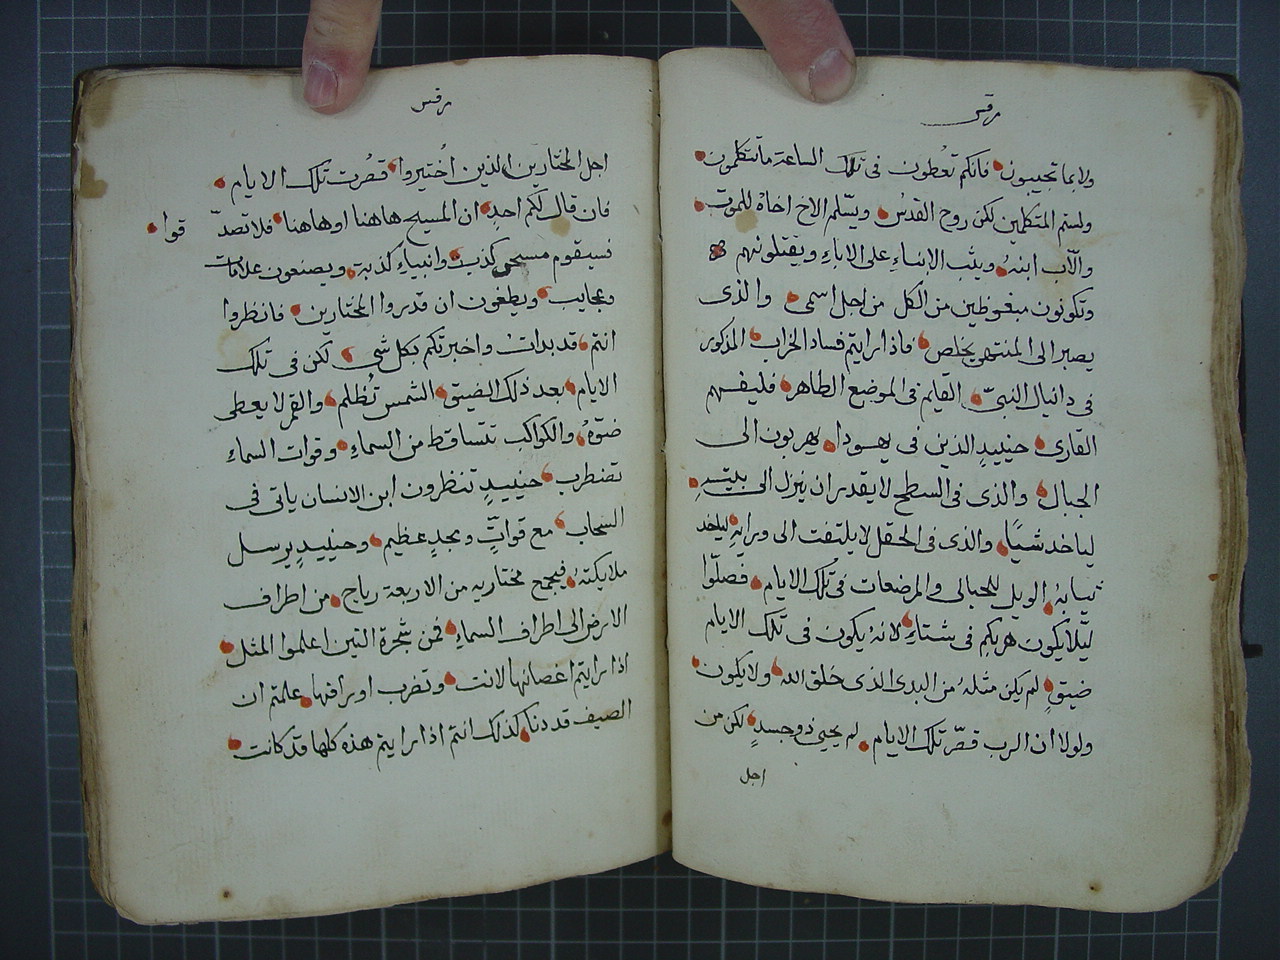 مرقس
ولا بما تجيبون فانكم تعطون فى تلك الساعة ما تتكلمون
ولستم المتكلمين لكن روح القدس ويسّلم الاخ اخاهُ للموت
والآب ابنهُ ويثب الابناءِ على الاباءِ ويقتلونهم
وتكونون مبغوظين من الكل من اجل اسمى والذى
يصبر الى المنتهى يخلص فاذا رايتم فساد الخراب المذكور
فى دانيال النبىّ القايم فى الموضع الطاهر فليفهم
القارى حينيدٍ الذين فى يهودا يهربون الى
الجبال والذى فى السطح لا يقدر ان ينزل الى بيتهِ
لياخد شياً والذى فى الحقل لا يلتفت الى ورايهِ لياخد
ثيابهُ الويل للحبالى والمرضعات فى تلك الايام فصلّوا
ليّلا يكون هربكم فى شتاءِ لانهُ يكون فى تلك الايام
ضيقٍ لم يكن مثلهُ من البدى الذى خلق الله ولا يكون
ولولا ان الرب قصّر تلك الايام لم يحيى ذو جسدٍ لكن من
اجل
مرقس
اجل المختارين الذين اُختيروا قصُرت تلك الايام
فان قال لكم احدٍ ان المسيح هاهنا او هاهنا فلا تصدّ قوا
فسيقوم مسيحى كذبة وانبياءِ كذبة ويصنعون علامات
وعجايب ويطغون ان قدروا المختارين فانظروا
انتم قد بدات واخبرتكم بكل شى لكن فى تلك
الايام بعد ذلك الضيق الشمس تُظلم والقمر لا يعطى
ضوّهُ والكواكب تتساقط من السماءِ وقوات السماءِ
تضطرب حينيدٍ تنظرون ابن الانسان ياتى فى
السحاب مع قواتٍ ومجدٍ عظيم وحينيدٍ يرسل
ملايكتهُ فيجمع مختاريه من الاربعة رياح من اطراف
الارض الى اطراف السماءِ فمن شجرة التين اعلموا المثل
اذا رايتم اغصانها لانت وتفرب اوراقها علمتم ان
الصيف قد دنا كذلك انتم اذا رايتم هذه كلها قد كانت